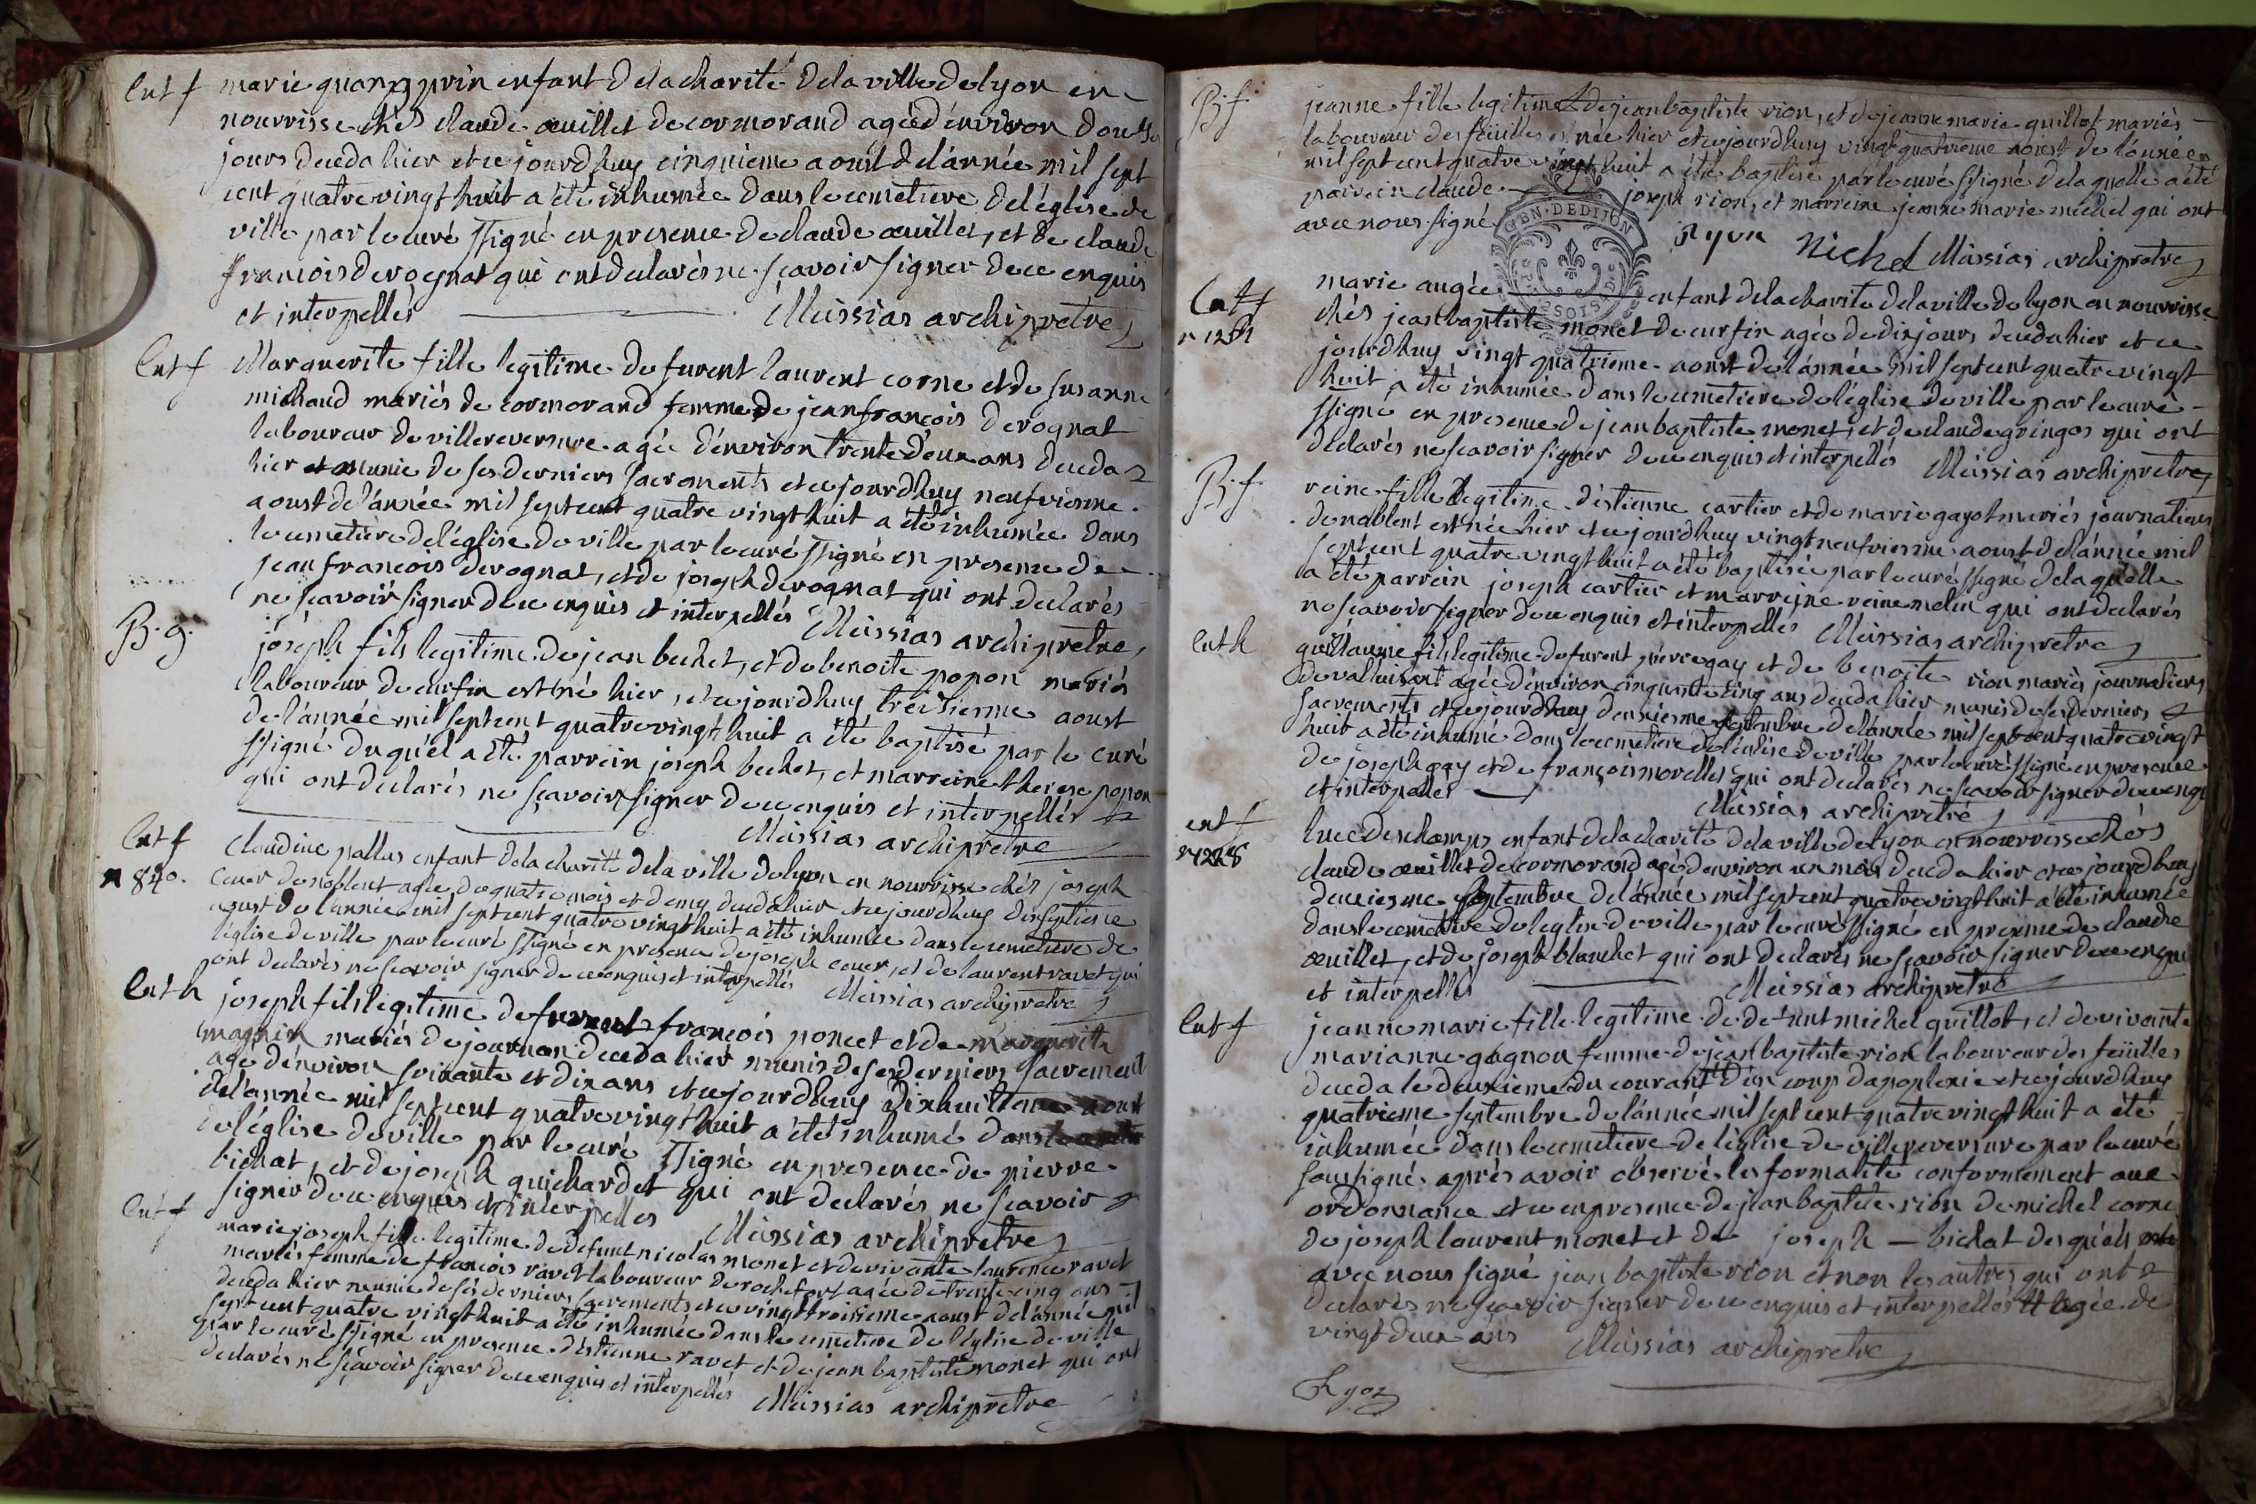 Ent f
marie quanpprin enfant de la charité de la ville de lyon en
nourrisse chés claude œuillet de cormorand agée d'environ douze
jours deceda hier et ce jourdhuy cinquieme aoust de l'année mil sept
cent quatre vingt huit a été inhumée dans le cemetiere de l'église de
ville par le curé ssigné en presence de claude œuillet, et de claude
francois derognat qui ont declarés ne scavoir signer de ce enquis
et interpellés Messias archipretre
Ent f
Marguerite fille legitime de furent laurent corne et de susanne
michaud mariés de cormorand femme de jean françois derognat
laboureur de villereversure agée d'environ trente d'eux ans deceda
hier et munie de ses derniers sacrements et ce jourdhuy neufvieme
aoust de l'année mil sept cent quatre vingt huit a été inhumée dans
le cemetiere de l'église de ville par le curé ssigné en presence de
jean francois derognat, et de joseph derognat qui ont declarés
ne scavoir signer de ce enquis et interpellés Messias archipretre
B. g.
joseph fils legitime de jean bechet, et de benoite popon mariés
laboureur de curfin est né hier, et ce jourdhuy treizieme aoust
de l'année mil sept cent quatre vingt huit a été baptisé par le curé
ssigné duquel a été parrein joseph bechet, et marreine therese popon
qui ont declarés ne sçavoir signer de ce enquis et interpellés
Messias archipretre
Ent f
n 840.
Claudine pallus enfant de la charité de la ville de lyon en nourrisse chés joseph
cœur de noblent agée de quatre mois et demy deceda hier et ce jourdhuy dixseptieme
aoust de l'année mil sept cent quatre vingt huit a été inhumée dans le cemetiere de
l'église de ville par le curé ssigné en presence de joseph cœur, et de laurent ravet qui
ont declarés ne scavoir signer de ce enquis et interpellés Messias archipretre
Ent h
joseph fils legitime de furent françois poncet et de marguerite
magnin mariés de journan deceda hier munis de ses derniers sacrement
agé d'environ soixante et dix ans et ce jourdhuy dixhuitieme aoust
de l'année mil sept cent quatre vingt huit a été inhumé dans
de l'église de ville par le curé ssigné en presence de pierre
bichat, et de joseph guichardet qui ont declarés ne scavoir
signer de ce enquis et interpellés Messias archipretre
Ent f
marie joseph fille legitime de defunt nicolas monet et de vivante laurence ravet
mariés femme de francois ravet laboureur de rochefort agée de trente cinq ans
deceda hier munie de ses derniers sacrements et ce vingt troisieme aoust de l'année mil
sept cent quatre vingt huit a été inhumée dans le cemetiere de l'église de ville
par le curé ssigné en presence d'estienne ravet et de jean baptiste monet qui ont
declarés ne sçavoir signer de ce enquis et interpellés
Messias archipretre
B. f.
jeanne fille legitime de jean baptiste rion, et de jeanne marie guillot mariés
laboureur des feüilles est née hier et ce jourdhuy vingt quatrieme aoust de l'année
mil sept cent quatre vingt huit a été baptisée par le curé ssigné de laquelle a été
parrein claude joseph rion, et marreine jeanne marie michel qui ont
avec nous signé
GEN. DE DIJON
ryon Michel Messias archipretre
Ent f
marie augée enfant de la charité de la ville de lyon en nourrisse
chés jean baptiste monet de curfin agée de dix jours deceda hier et ce
jourdhuy vingt quatrieme aoust de l'année mil sept cent quatre vingt
huit a été inhumée dans le cemetiere de l'église de ville par le curé
ssigné en presence de jean baptiste monet, et de claude gringos qui ont
declarés ne scavoir signer de ce enquis et interpellés Messias archipretre
B. f.
reine fille legitime d'estienne cartier et de marie gayot mariés journaliers
de noblent est née hier et ce jourdhuy vingt neufvieme aoust de l'année mil
sept cent quatre vingt huit a été baptisée par le curé ssigné de laquelle
a été parrein joseph cartier et marreine reine melin qui ont declarés
ne scavoir signer de ce enquis et interpellés Messias archipretre
Ent h
guillaume fils legitime de furent pierre gay et de benoite rion mariés journaliers
de valuisant agée d'environ cinquante cinq ans deceda hier munis de ses derniers
sacrements et ce jourdhuy deuxieme septembre de l'année mil sept cent quatre vingt
huit a été inhumé dans le cemetiere de l'église de ville par le curé ssigné en presence
de joseph gay et de françois morellet qui ont declarés ne scavoir signer de ce enqui
et interpellés
Messias archipretre
ent f
n 1268
luce deschamps enfant de la charité de la ville de lyon en nourrisse chés
claude œuillet de cormorand agée d'environ un mois deceda hier et ce jourdhuy
deuxieme septembre de l'année mil sept cent quatre vingt huit a été inhumée
dans le cemetiere de l'église de ville par le curé ssigné en presence de claude
œuillet, et de joseph blanchet qui ont declarés ne scavoir signer de ce enqui
et interpellés Messias archipretre
Ent f
jeanne marie fille legitime de defunt michel guillot, et de vivante
marianne gagnon femme de jean baptiste rion laboureur des feüilles
deceda le deuxieme du courant d'un coup d'apoplexie et ce jourdhuy
quatrieme septembre de l'année mil sept cent quatre vingt huit a été
inhumée dans le cemetiere de l'église de villereversure par le curé
soussigné aprés avoir observé les formalité conformement aux
ordonnance et ce en presence de jean baptiste rion de michel corne
de joseph laurent monet et de joseph bichat desquels
avec nous signé jean baptiste rion et non les autres qui ont
declarés ne scavoir signer de ce enquis et interpellés agée de
vingt deux ans Messias archipretre
Ryon